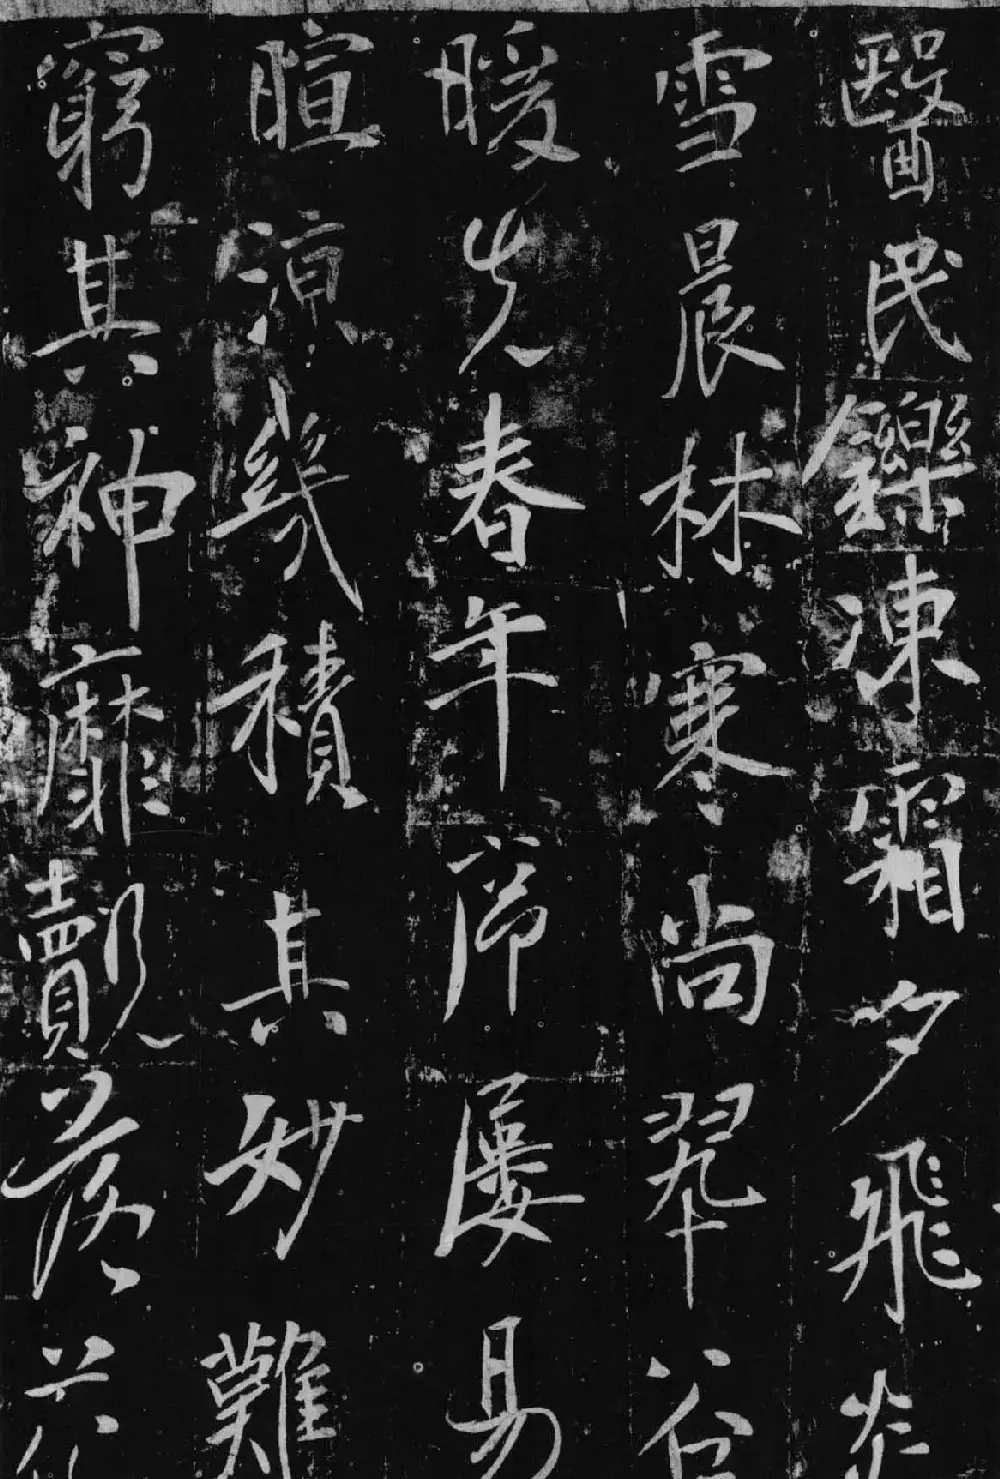 醫民鑠凍霜夕飛炎
雪晨林寒尚翠谷
暖先春年節屢易
暄涼幾積其妙難
窮其神靡覿落花